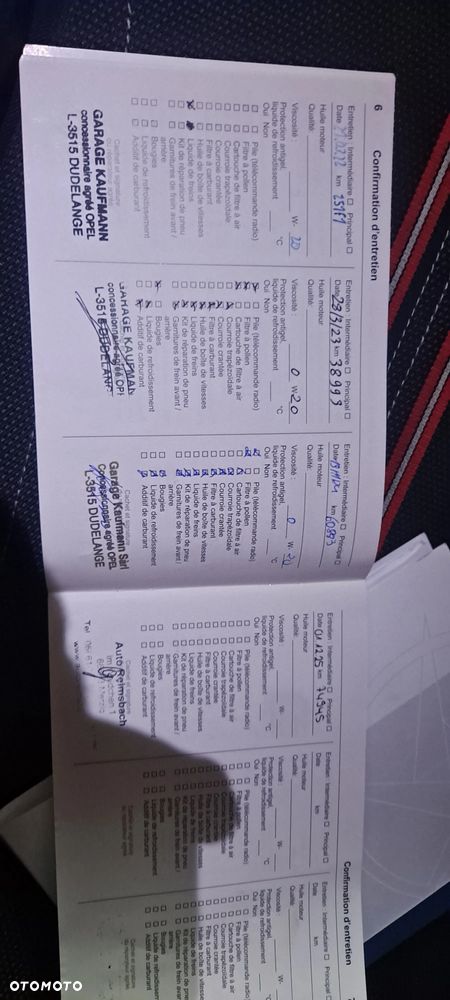 6 Confirmation d'entretien
Entretien : Intermédiaire ☐ Principal ☐
Date km
Huile moteur
Qualité:
Viscosité W- 20
Protection antigel,
liquide de refroidissement °C
Oui Non
☐ ☐ Pile (télécommande radio)
☐ ☐ Filtre à pollen
☐ ☐ Cartouche de filtre à air
☐ ☐ Courroie trapézoïdale
☐ ☐ Courroie crantée
☐ ☐ Filtre à carburant
☐ ☐ Huile de boîte de vitesses
Liquide de freins
☐ ☐ Kit de réparation de pneu
☐ ☐ Garnitures de frein avant /
arrière
☐ ☐ Bougies
☐ ☐ Liquide de refroidissement
☐ ☐ Additif de carburant
Cachet et signature
GARAGE KAUFMANN
concessionnaire agréé OPEL
L-3515 DUDELANGE
Entretien : Intermédiaire ☐ Principal ☐
Date 28/3/23 km 38993
Huile moteur
Qualité:
Viscosité 0 W 20
Protection antigel,
liquide de refroidissement °C
Oui Non
Pile (télécommande radio)
Filtre à pollen
Cartouche de filtre à air
Courroie trapézoïdale
Courroie crantée
Filtre à carburant
Huile de boîte de vitesses
Liquide de freins
Kit de réparation de pneu
Garnitures de frein avant /
arrière
Bougies
Liquide de refroidissement
Additif de carburant
GARAGE KAUFMAN
concessionnaire agréé OPE
L-3515 DUDELAN
Entretien : Intermédiaire ☐ Principal ☐
Date km
Huile moteur
Qualité:
Viscosité 0 W-
Protection antigel,
liquide de refroidissement °C
Oui Non
Pile (télécommande radio)
Filtre à pollen
Cartouche de filtre à air
Courroie trapézoïdale
Courroie crantée
Filtre à carburant
Huile de boîte de vitesses
Liquide de freins
Kit de réparation de pneu
Garnitures de frein avant /
arrière
Bougies
Liquide de refroidissement
Additif de carburant
Cachet et signature
Garage Kaufmann Sàrl
Concessionnaire agréé OPEL
L-3515 DUDELANGE
Entretien : Intermédiaire ☐ Principal ☐
Date 01.12.25 km 74945
Huile moteur
Qualité:
Viscosité W-
Protection antigel,
liquide de refroidissement °C
Oui Non
☐ ☐ Pile (télécommande radio)
☐ ☐ Filtre à pollen
☐ ☐ Cartouche de filtre à air
☐ ☐ Courroie trapézoïdale
☐ ☐ Courroie crantée
☐ ☐ Filtre à carburant
☐ ☐ Huile de boîte de vitesses
☐ ☐ Liquide de freins
☐ ☐ Kit de réparation de pneu
☐ ☐ Garnitures de frein avant /
arrière
☐ ☐ Bougies
☐ ☐ Liquide de refroidissement
☐ ☐ Additif de carburant
Cachet et signature
Auto Reimsbach
Confirmation d'entretien 7
Entretien : Intermédiaire ☐ Principal ☐
Date km
Huile moteur
Qualité:
Viscosité W-
Protection antigel,
liquide de refroidissement °C
Oui Non
☐ ☐ Pile (télécommande radio)
☐ ☐ Filtre à pollen
☐ ☐ Cartouche de filtre à air
☐ ☐ Courroie trapézoïdale
☐ ☐ Courroie crantée
☐ ☐ Filtre à carburant
☐ ☐ Huile de boîte de vitesses
☐ ☐ Liquide de freins
☐ ☐ Kit de réparation de pneu
☐ ☐ Garnitures de frein avant /
arrière
☐ ☐ Bougies
☐ ☐ Liquide de refroidissement
☐ ☐ Additif de carburant
Cachet et signature
du réparateur agréé
Entretien : Intermédiaire ☐ Principal
Date km
Huile moteur
Qualité:
Viscosité W-
Protection antigel,
liquide de refroidissement
Oui Non
☐ ☐ Pile (télécommande radio)
☐ ☐ Filtre à pollen
☐ ☐ Cartouche de filtre à air
☐ ☐ Courroie trapézoïdale
☐ ☐ Courroie crantée
☐ ☐ Filtre à carburant
☐ ☐ Huile de boîte de vitesses
☐ ☐ Liquide de freins
☐ ☐ Kit de réparation de pneu
☐ ☐ Garnitures de frein avant /
arrière
☐ ☐ Bougies
☐ ☐ Liquide de refroidissement
☐ ☐ Additif de carburant
Cachet et signature
du réparateur agréé
OTOMOTO